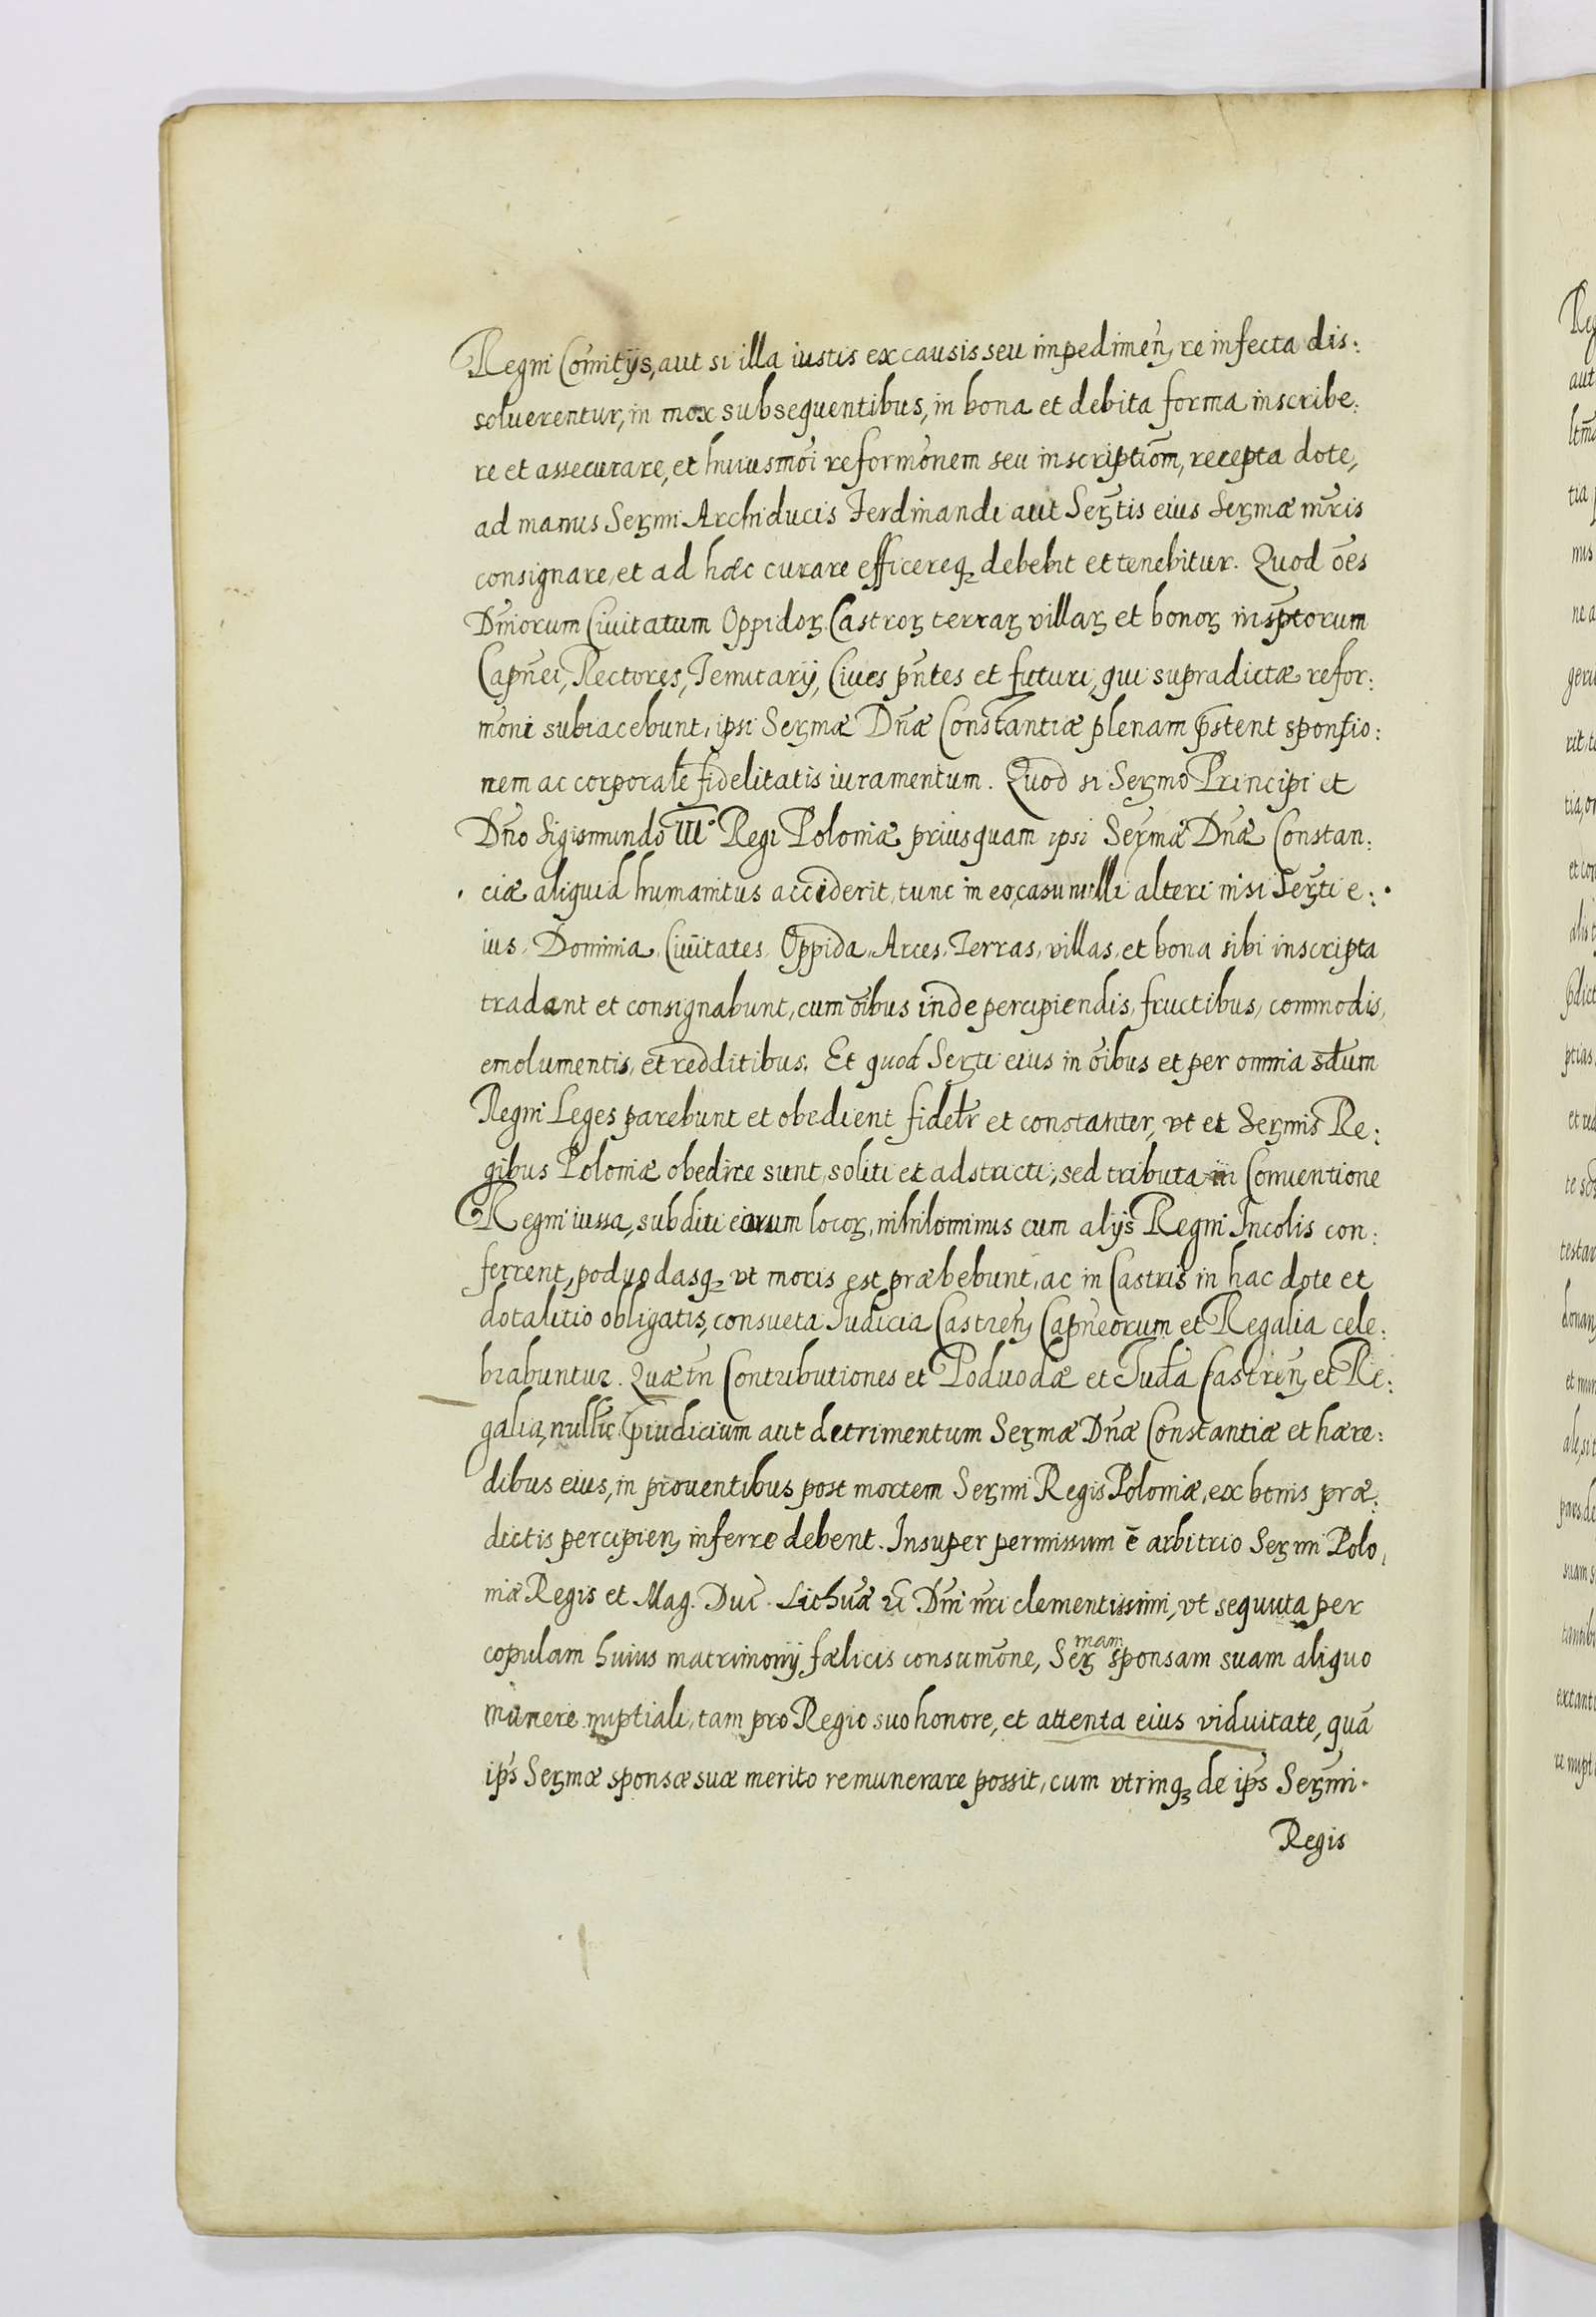 Regni Comitijs, aut si illa iustis ex causis seu impedimen̄, re infecta dis:
soluerentur, in mox subsequentibus, in bona et debita forma inscribe:
re et assecurare, et huiusmōi reformōnem seu inscriptiōm, recepta dote,
ad manus Serꝫmi Archiducis Ferdinandi aut Serꝫtis eius Serꝫmæ mr̄is
consignare, et ad hæc curare efficereqꝫ debebit et tenebitur. Quod ōes
Dn̄iorum Ciuitatum Oppidoꝝ Castroꝝ terraꝝ villaꝝ et bonoꝝ insp̄torum
Capn̄ei, Rectores, Tenutarij, Ciues pn̄tes et futuri, qui supradictæ refor:
mōni subiacebunt, ipsi Serꝫmæ Dn̄æ Constantiæ plenam p̄stent sponsio:
nem ac corporalē fidelitatis iuramentum. Quod si Serꝫmo Principi et
Dn̄o Sigismundo III° Regi Poloniæ priusquam ipsi Serꝫmæ Dn̄æ Constan:
ciæ aliquid humanitus acciderit, tunc in eo casu nulli alteri nisi Serꝫti e:
ius, Dominia, Ciuitates, Oppida, Arces, Terras, villas, et bona sibi inscripta
tradant et consignabunt, cum ōibus inde percipiendis, fructibus, commodis,
emolumentis, et redditibus. Et quod Serꝫti eius in ōibus et per omnia sēdum
Regni Leges parebunt et obedient fidelr̄ et constanter, vt et Serꝫmis Re:
gibus Poloniæ obedire sunt soliti et adstricti, sed tributa in Conuentione
Regni iussa, subditi eorum locoꝝ, nihilominus cum alijs Regni Incolis con:
ferrent, poduodasqꝫ vt moris est præbebunt, ac in Castris in hac dote et
dotalitio obligatis, consueta Iudicia Castren̄, Capn̄eorum et Regalia cele:
brabuntur. Quæ tn̄ Contributiones et Poduodæ et Iud̄a Castren̄, et Re:
galia, nullū p̄iudicium aut detrimentum Serꝫmæ Dn̄æ Constantiæ et hære:
dibus eius, in prouentibus post mortem Serꝫmi Regis Poloniæ, ex bonis præ:
dictis percipien̄, inferre debent. Insuper permissum ē arbitrio Serꝫmi Polo,
niæ Regis et Mag. Duc̄. Lithuæ Dn̄i nr̄i clementissimi, vt sequuta per
copulam huius matrimonij fælicis consumōne, Serꝫmam sponsam suam aliquo
munere nuptiali, tam pro Regio suo honore, et attenta eius viduitate, quā
ips̄ Serꝫmæ sponsæ suæ merito remunerare possit, cum vtrinqꝫ de ips̄ Serꝫmi.
Regis